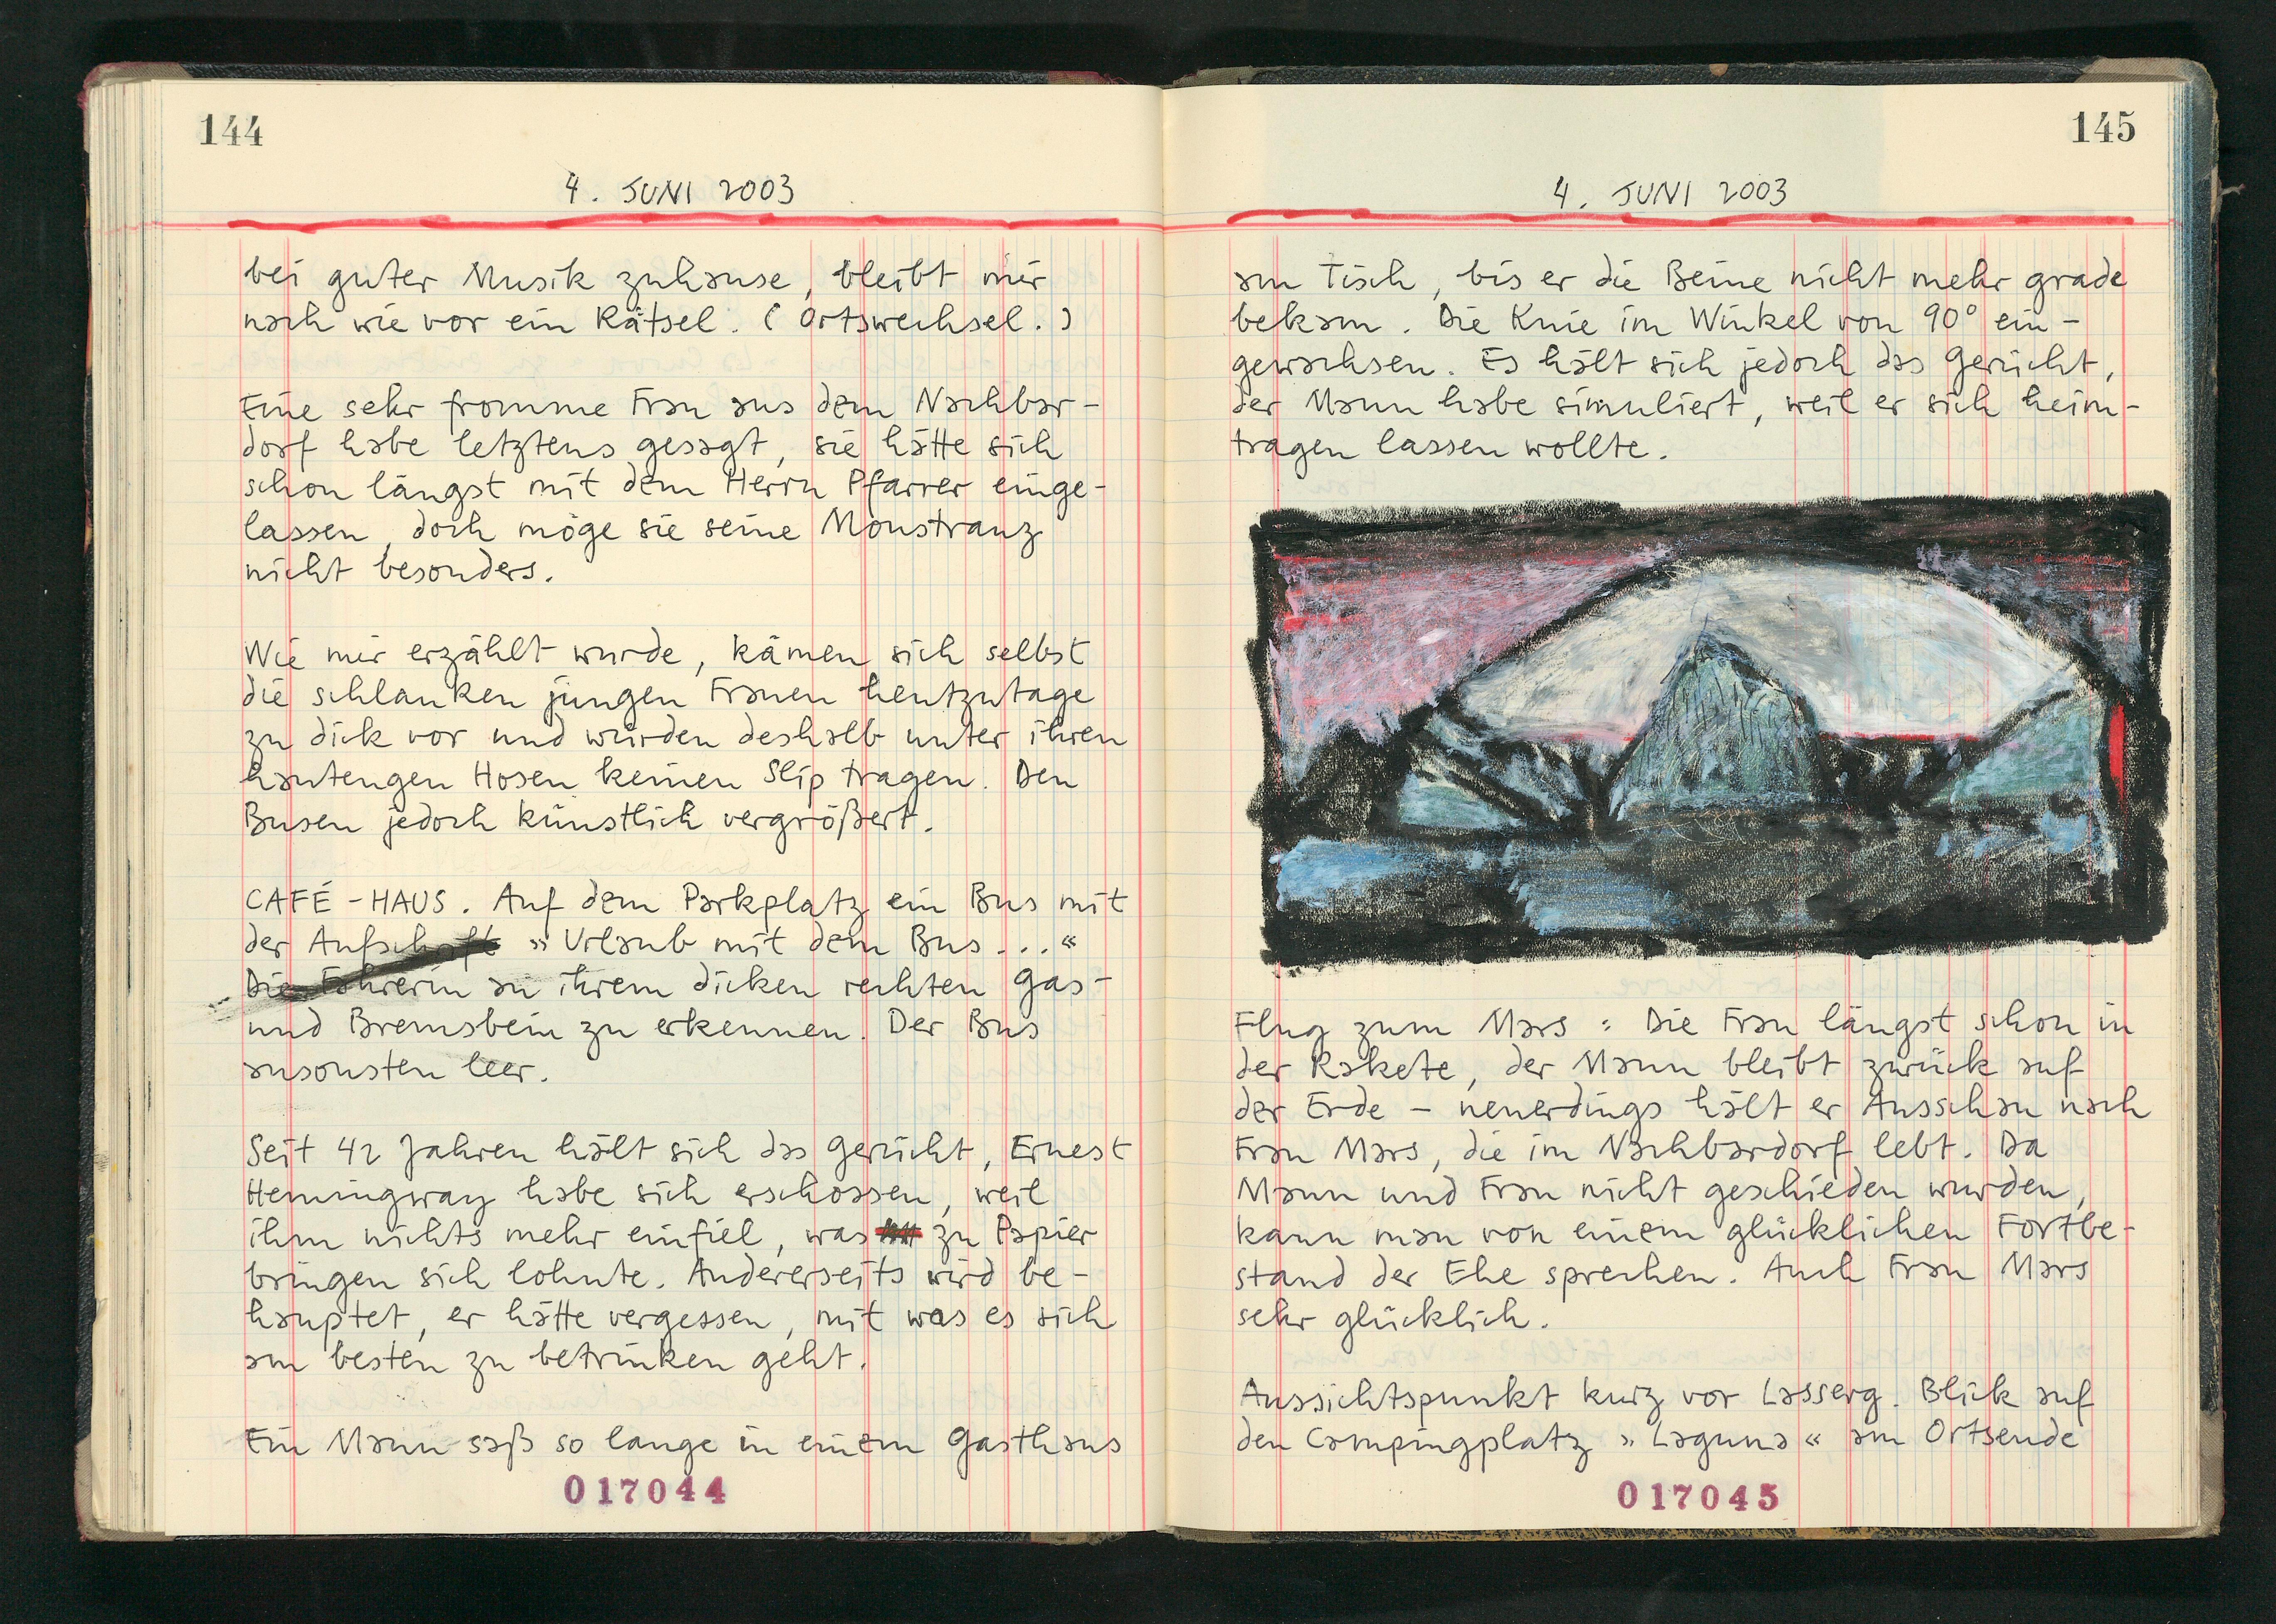 144
4. JUNI 2003
bei guter Musik zuhause, bleibt mir
nach wie vor ein Rätsel. (Ortswechsel.)
Eine sehr fromme Frau aus dem Nachbar-
dorf habe letztens gesagt, sie hätte sich
schon längst mit dem Herrn Pfarrer einge-
lassen, doch möge sie seine Monstranz
nicht besonders.
Wie mir erzählt wurde, kämen sich selbst
die schlanken jungen Frauen heutzutage
zu dick vor und würden deshalb unter ihren
hautengen Hosen keinen Slip tragen. Den
Busen jedoch künstlich vergrößert.
CAFÉ-HAUS. Auf dem Parkplatz ein Bus mit
der Aufschrift »Urlaub mit dem Bus...«
Die Fahrerin an ihrem dicken rechten Gas-
und Bremsbein zu erkennen. Der Bus
ansonsten leer.
Seit 42 Jahren hält sich das Gerücht, Ernest
Hemingway habe sich erschossen, weil
ihm nichts mehr einfiel, was zu Papier
bringen sich lohnte. Andererseits wird be-
hauptet, er hätte vergessen, mit was es sich
am besten zu betrinken geht.
Ein Mann saß so lange in einem Gasthaus
017044
145
4. JUNI 2003
am Tisch, bis er die Beine nicht mehr grade
bekam. Die Knie im Winkel von 90° ein-
gewachsen. Es hält sich jedoch das Gerücht,
der Mann habe simuliert, weil er sich heim-
tragen lassen wollte.
Flug zum Mars: Die Frau längst schon in
der Rakete, der Mann bleibt zurück auf
der Erde – neuerdings hält er Ausschau nach
Frau Mars, die im Nachbardorf lebt. Da
Mann und Frau nicht geschieden wurden,
kann man von einem glücklichen Fortbe-
stand der Ehe sprechen. Auch Frau Mars
sehr glücklich.
Aussichtspunkt kurz vor Lasserg. Blick auf
den Campingplatz »Laguna« am Ortsende
017045